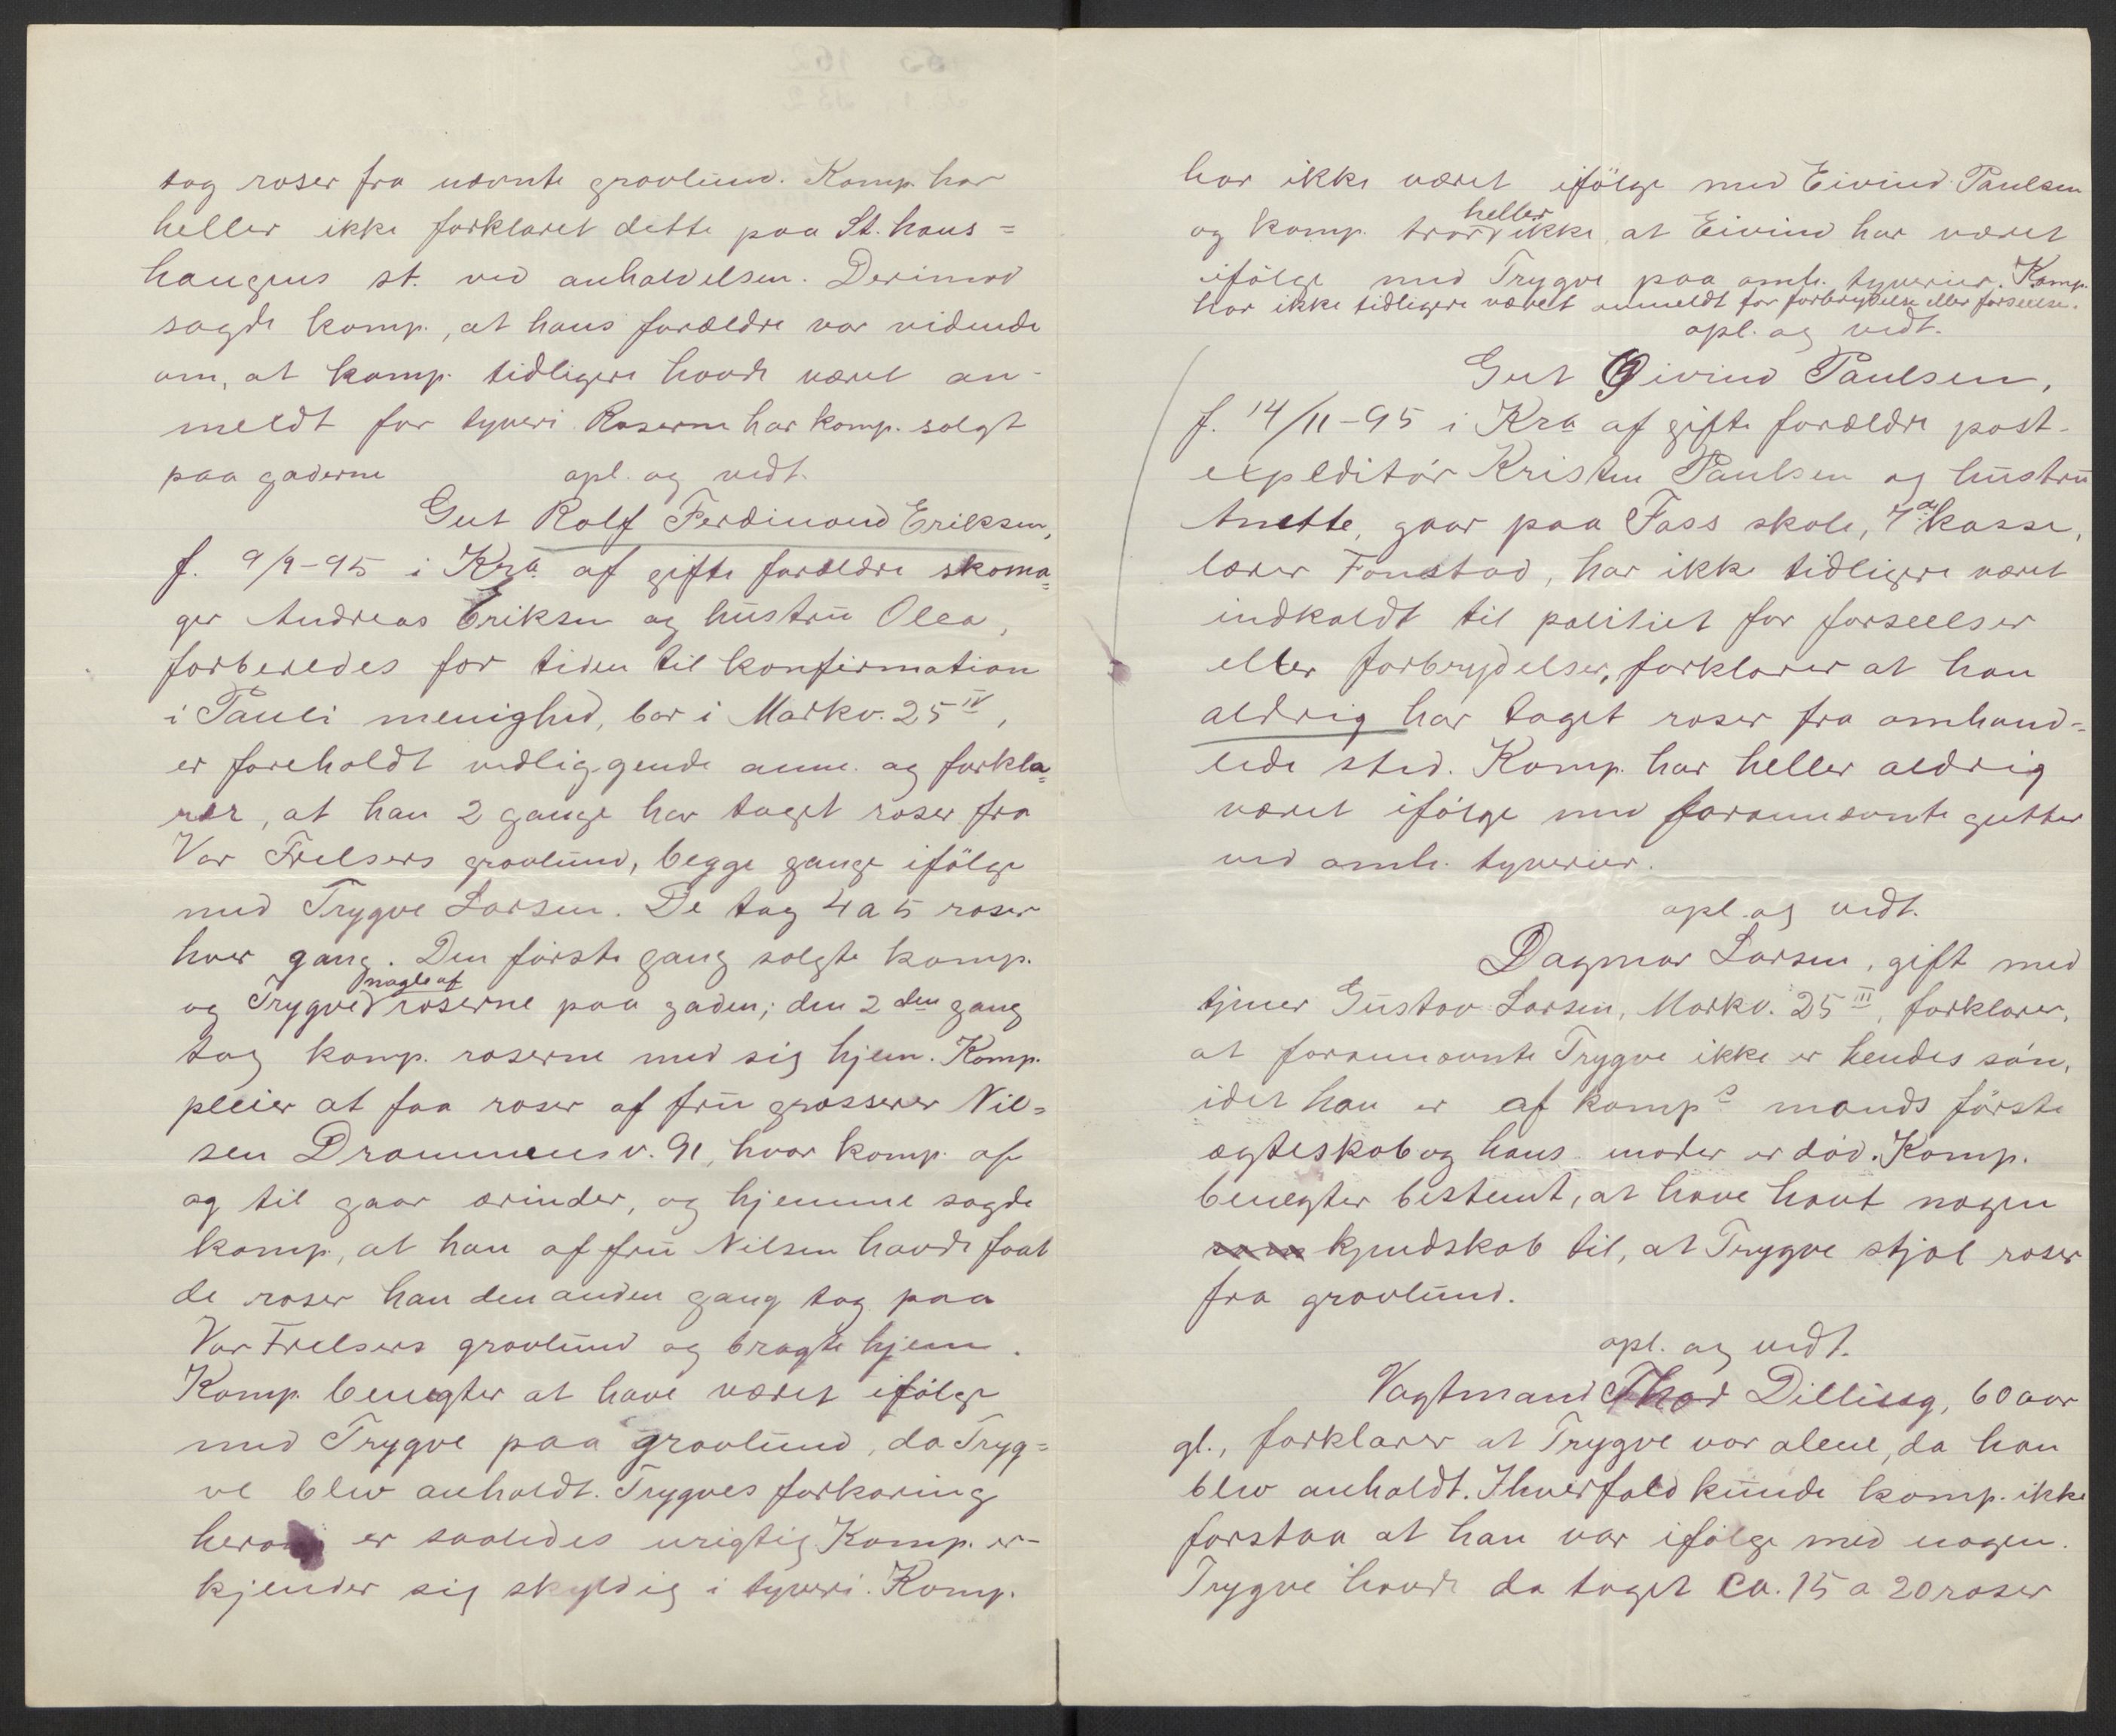 tog roser fra nævnte gravlund. Komp. har
heller ikke forklaret dette paa St. hans=
haugens st. ved anholdelsen. Derimod
sagde komp., at hans forældre var vidende
om, at komp. tidligere havde været an-
meldt for tyveri. Roserne har komp. solgt
paa gaderne
opl. og vedt.
Gut Rolf Ferdinand Eriksen,
f. 9/9-95 i Kra af gifte forældre skoma=
ger Andreas Eriksen og hustru Olea,
forberedes for tiden til konfirmation
i Pauli menighed, bor i Markv. 25 IV,
er foreholdt vedliggende anm. og forkla=
rer, at han 2 gange har taget roser fra
Vor Frelsers gravlund, begge gange ifölge
med Trygve Larsen. De tog 4 a 5 roser
hver gang. Den förste gang solgte komp.
og Trygve nogle af roserne paa gaden; den 2 den gang
tog komp. roserne med sig hjem. Komp.
pleier at faa roser af fru grosserer Nil=
sen Drammensv. 91, hvor komp. af
og til gaar ærinder, og hjemme sagde
komp., at han af fru Nilsen havde faat
de roser han den anden gang tog paa
Vor Frelsers gravlund og bragte hjem.
Komp. benegter at have været ifölge
med Trygve paa gravlund, da Tryg=
ve blev anholdt. Trygves forkaring
er saaledes urigtig Komp. er-
kjender sig skyldig i tyveri. Komp.
har ikke været ifölge med Eivind Paulsen
og komp. tror heller ikke, at Eivind har været
ifölge med Trygve paa omh. tyverier. Komp.
har ikke tidligere været anmeldt for forbrydelse eller forseelse.
opl. og vedt.
Gut Öivind Paulsen,
f. 14/11-95 i Kra af gifte forældre post-
expeditör Kristen Paulsen og hustru
Anette, gaar paa Foss skole, 7 kasse,
lærer Fonstad, har ikke tidligere været
indkaldt til politiet for forseelser
eller forbrydelser, forklarer at han
aldrig har taget roser fra omhand=
lede sted. Komp. har heller aldrig
været ifölge med forannævnte gutter
ved omh. tyverier.
opl. og vedt.
Dagmar Larsen, gift med
tjener Gustav Larsen, Markv. 25 III, forklarer,
at forannævnte Trygve ikke er hendes sön,
idet han er af komp s mands förste
ægteskab og hans moder er död. Komp.
benegter bestemt, at have havt nogen
kjendskab til, at Trygve stjal roser
fra gravlund.
opl. og vedt.
Vagtmand Thor Dilling, 60 aar
gl., forklarer at Trygve var alene, da han
blev anholdt. Ihverfald kunde komp. ikke
forstaa at han var ifölge med nogen.
Trygve havde da taget ca. 15 a 20 roser